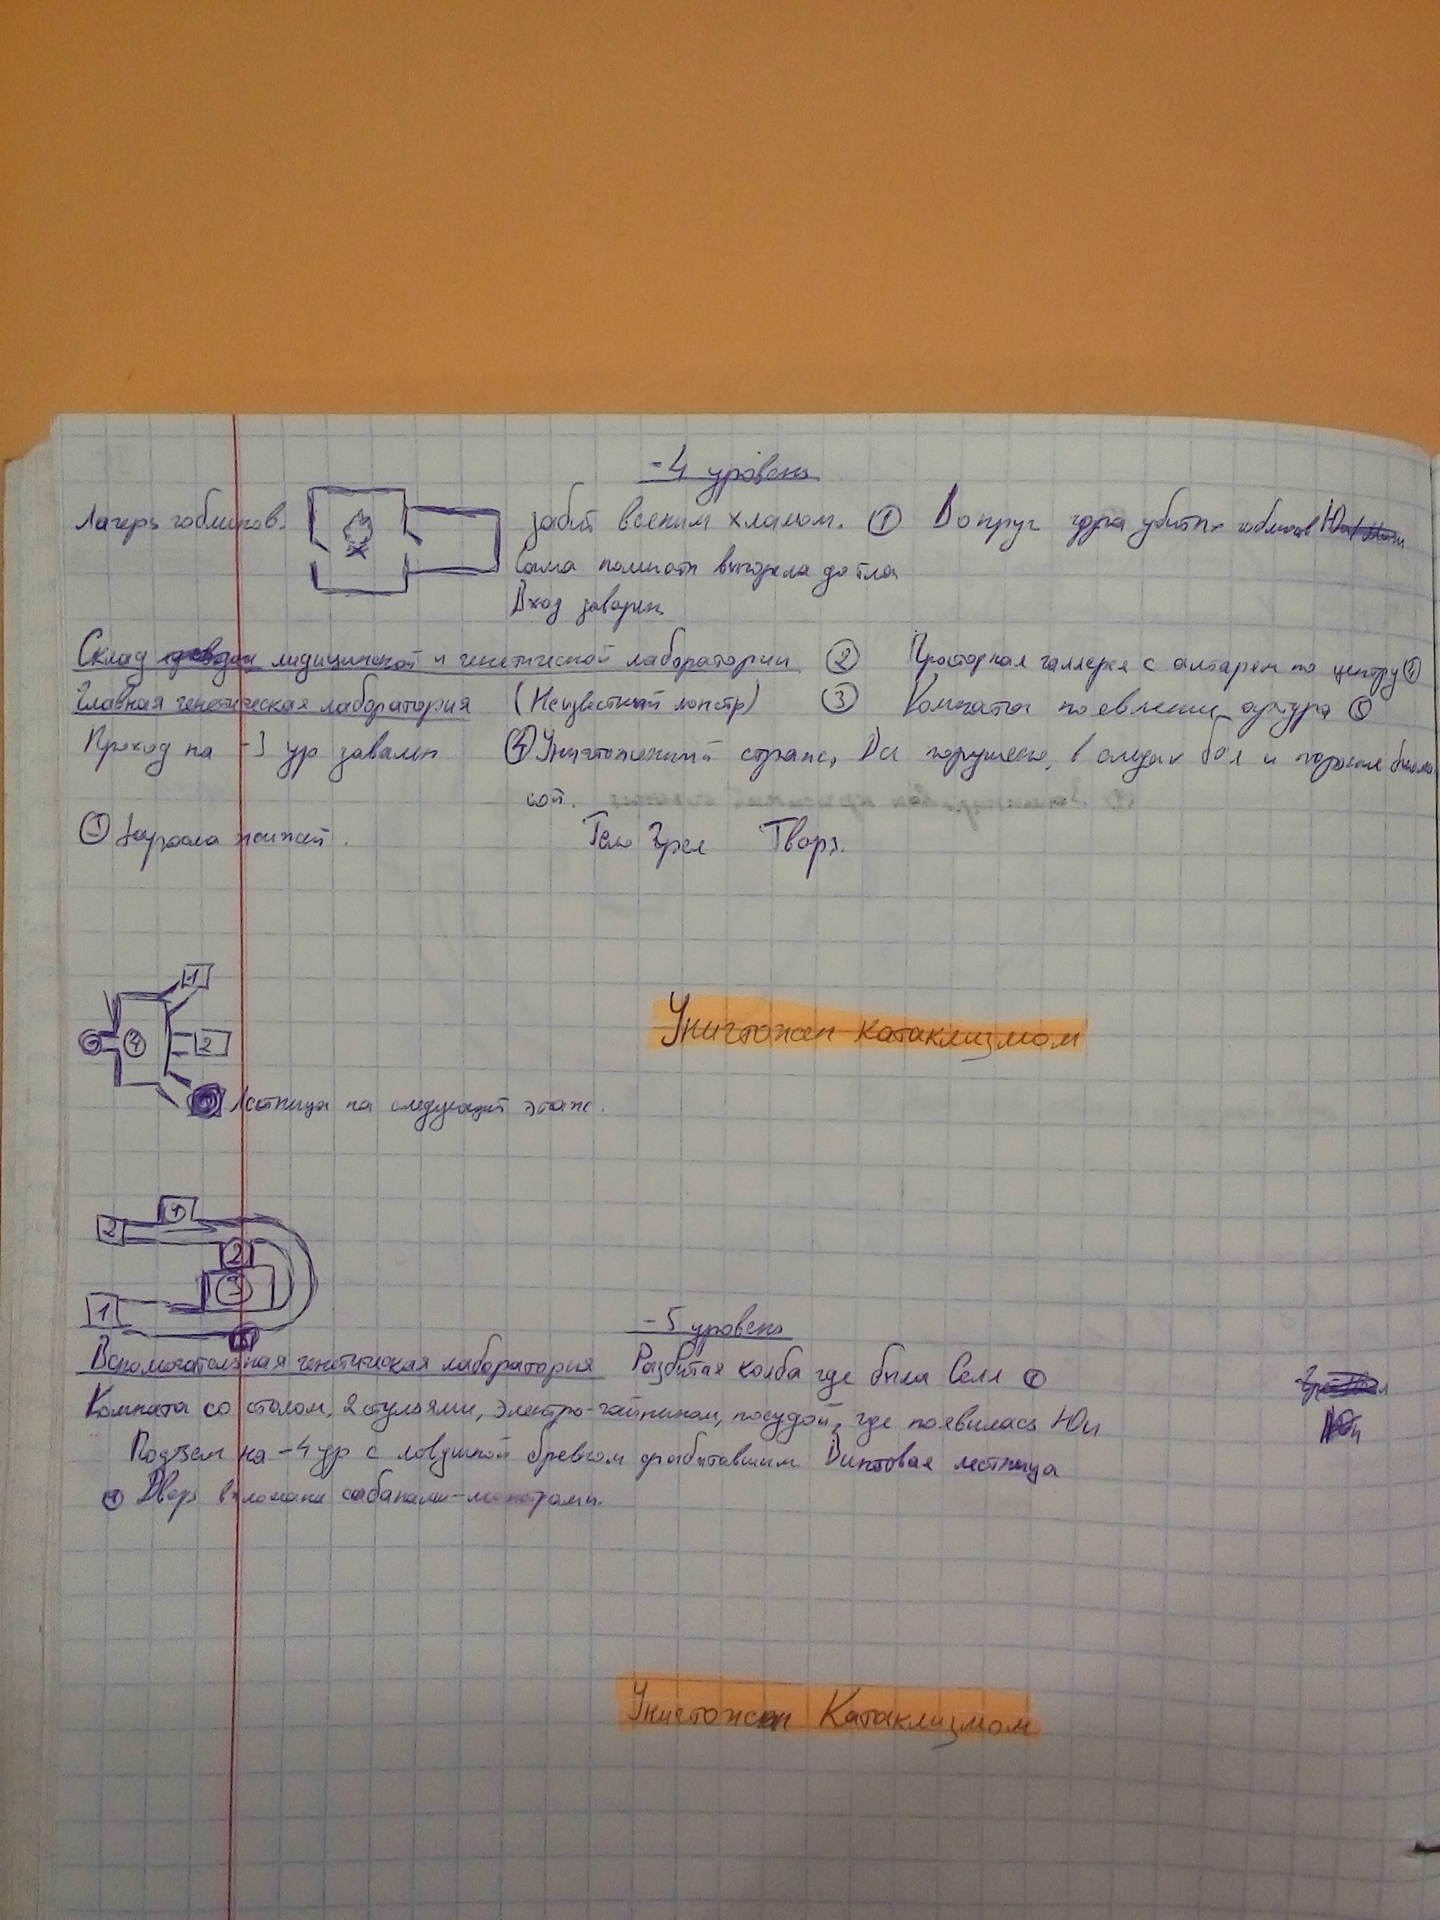 -4 уровень
Лагерь гоблинов. забит всеким хламом. ① Вокруг гора убитых гоблинов
Сама комната выгорела до тла
Вход заварен
Склад медицинской и генетической лаборатории ② Просторная галлерея с алтарем по центру ④
Главная генетическая лаборатория (Неизвестный монстр) ③ Комната появления Артура ⑤
Проход на -3 ур завален ④ Уничтоженный страж, Всё порушено, в следах боя и
③ Тело Тварь.
-1
④ 2
Лестница на следующий этаж.
Уничтожен катаклизмом
④
2
2
3
1
-5 уровень
Вспомогательная генетическая лаборатория Разбитая колба где была
Комната со столом, 2 стульями, электро-чайником, посудой, где появилась Юи
Подъем на -4 ур с ловушкой бревном сработавшим Винтовая лестница
④ Дверь взломана собаками-монстрами.
Уничтожен Катаклизмом